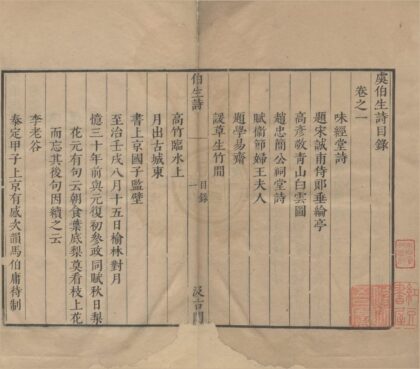 虞伯生詩目錄
卷之一
味經堂詩
題宋誠甫侍郎垂綸亭
高彥敬青山白雲圖
趙忠簡公祠堂詩
賦衛節婦王夫人
題學易齋
諼草生竹間
伯生詩
目錄
一
汲古閣
高竹臨水上
月出古城東
書上京國子監壁
至治壬戌八月十五日榆林對月
憶三十年前與元復初參政同賦秋日梨
花元有句云朝食葉底梨莫看枝上花
而忘其後句因續之云
李老谷
泰定甲子上京有感次韻馬伯庸待制